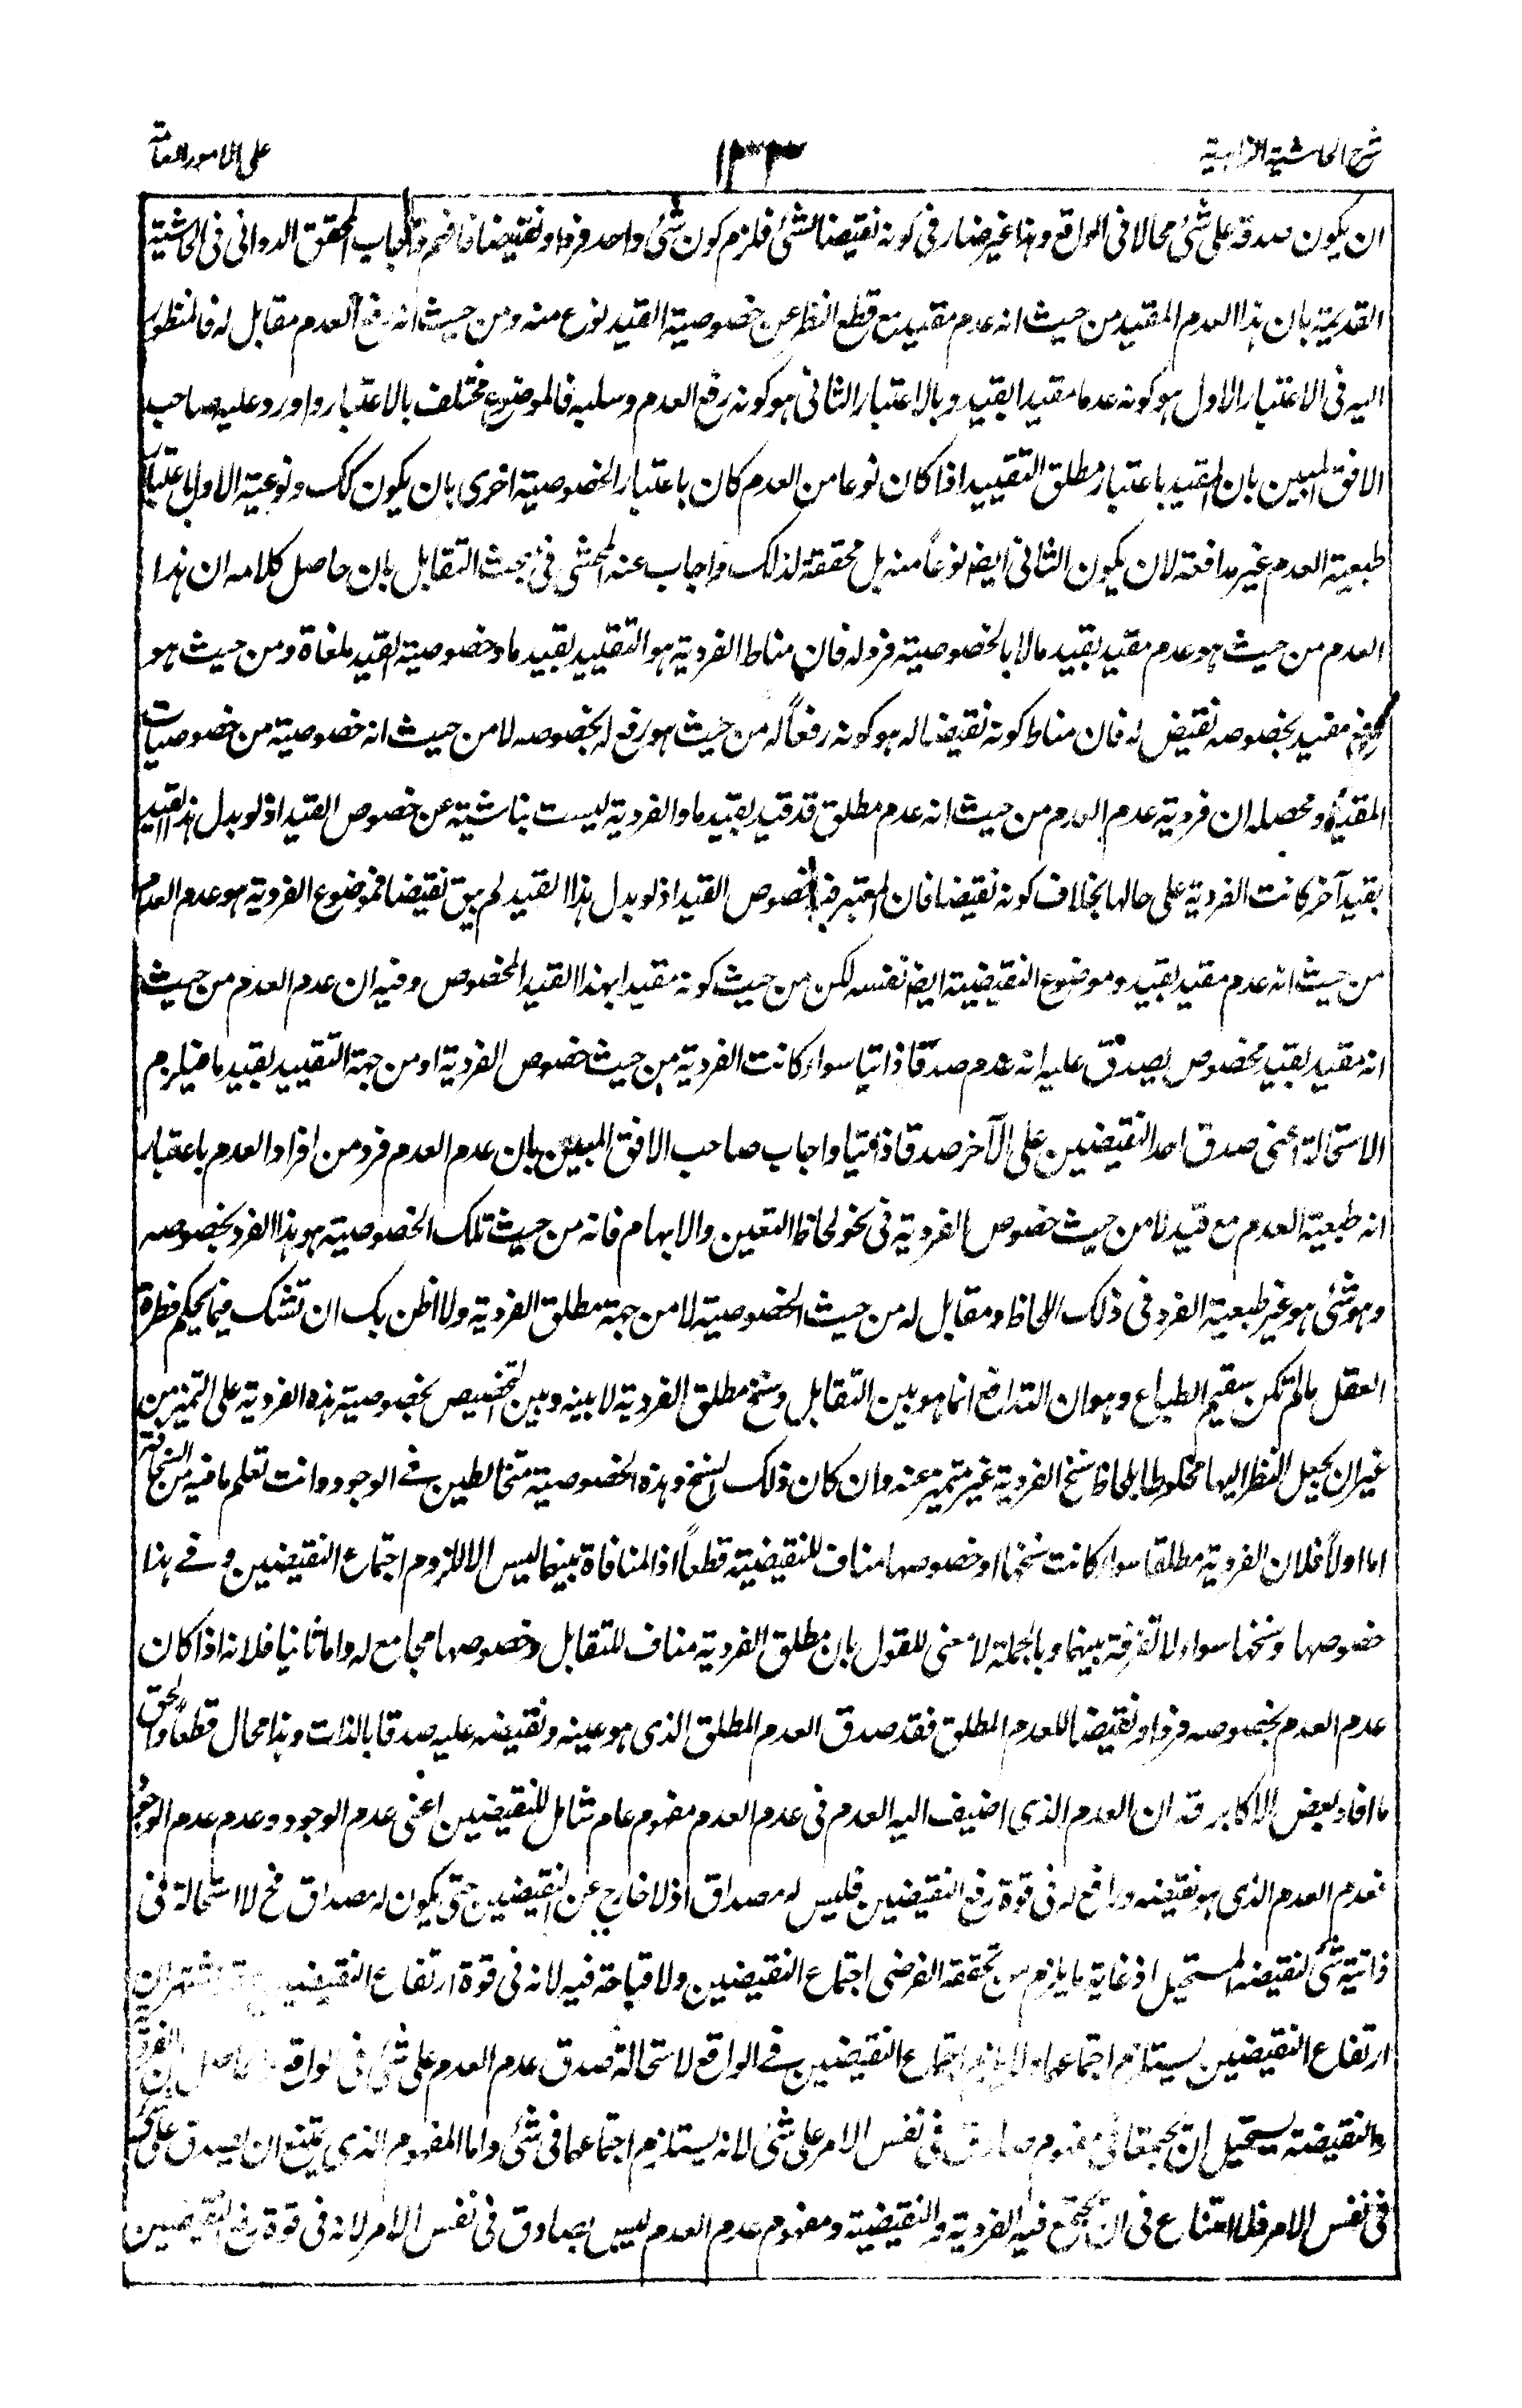 شرح الحاشية الزاهدية
١٣٣
على الامور العامة
ان يكون صدقه على شئ محالا فى الواقع وهذا غير ضار فى كونه نقيضا لشئ فلزم كون شئ واحد فردا ونقيضا فافهم واجاب المحقق الدوانى فى الحاشية
القديمة بان هذا العدم المقيد من حيث انه عدم مقيد مع قطع النظر عن خصوصية القيد نوع منه ومن حيث انه رفع العدم مقابل له فالمنظور
اليه فى الاعتبار الاول هو كونه عدما مقيدا بقيد وبالاعتبار الثانى هو كونه رفع العدم وسلبه فالموضوع مختلف بالاعتبار واورد عليه صاحب
الافق المبين بان المقيد باعتبار مطلق التقييد اذا كان نوعا من العدم كان باعتبار الخصوصية اخرى بان يكون كك ونوعية الاول باعتبار
طبعية العدم غير مدافعة لان يكون الثانى ايضا نوعاً منه بل محققة لذلك واجاب عنه المحشى فى بحث التقابل بان حاصل كلامه ان هذا
العدم من حيث هو عدم مقيد بقيد ما لا بالخصوصية فرد له فان مناط الفردية هو التقييد بقيد ما وخصوصية القيد ملغاة ومن حيث هو
رفع مقيد بخصوصه نقيض له فان مناط كونه نقيضا له هو كونه رفعاً له من حيث هو رفع له بخصوصه لا من حيث انه خصوصية من خصوصيات
المقيد ومحصله ان فردية عدم العدم من حيث انه عدم مطلق قد قيد بقيد ما والفردية ليست بناشية عن خصوص القيد اذ لو بدل هذا القيد
بقيد آخر كانت الفردية على حالها بخلاف كونه نقيضا فان المعتبر فيه خصوص القيد اذ لو بدل هذا القيد لم يبق نقيضا فموضوع الفردية هو عدم العدم
من حيث انه عدم مقيد بقيد وموضوع النقيضية ايضا نفسه لكن من حيث كونه مقيدا بهذا القيد المخصوص وفيه ان عدم العدم من حيث
انه مقيد بقيد مخصوص يصدق عليه انه عدم صدقا ذاتيا سواء كانت الفردية من حيث خصوص الفردية او من جهة التقييد بقيد ما فيلزم
الاستحالة اعنى صدق احد النقيضين على الآخر صدقا ذاتيا واجاب صاحب الافق المبين بان عدم العدم فرد من افراد العدم باعتبار
انه طبعية العدم مع قيد لا من حيث خصوص الفردية فى نحو لحاظ التعين والابهام فانه من حيث تلك الخصوصية هو هذا الفرد بخصوصه
وهو شئ هو غير طبعية الفرد فى ذلك اللحاظ ومقابل له من حيث الخصوصية لا من جهة مطلق الفردية ولا اظن بك ان تشك فيما يحكم فطرة
العقل ما لم تكن سقيم الطباع وهو ان التدافع انما هو بين التقابل وسنخ مطلق الفردية لا بينه وبين التخصيص بخصوصية هذه الفردية على التميز من
غير ان يجعل النظر اليها مخلوطا بلحاظ سنخ الفردية غير متميز عنه وان كان ذلك السنخ وهذه الخصوصية متخالطين فى الوجود وانت تعلم ما فيه من السخافة
اما اولاً فلان الفردية مطلقا سواء كانت سنخها او خصوصها مناف للنقيضية قطعاً اذ المنافاة بينهما ليس الا للزوم اجتماع النقيضين وفى هذا
خصوصها وسنخها سواء لا تفرقة بينهما وبالجملة لا معنى للقول بان مطلق الفردية مناف للتقابل وخصوصها مجامع له واما ثانيا فلانه اذا كان
عدم العدم بخصوصه فردا ونقيضا للعدم المطلق فقد صدق العدم المطلق الذى هو عينه ونقيضه عليه صدقا بالذات وهذا محال قطعاً والحق
ما افاد بعض الاكابر قد ان العدم الذى اضيف اليه العدم فى عدم العدم مفهوم عام شامل للنقيضين اعنى عدم الوجود وعدم عدم الوجود
فعدم العدم الذى هو نقيضه ورافع له فى قوة رفع النقيضين فليس له مصداق اذ لا خارج عن النقيضين حتى يكون له مصداق فح لا استحالة فى
ذاتية شئ لنقيضه المستحيل اذ غاية ما يلزم من تحققه الفرضى اجتماع النقيضين ولا قباحة فيه لانه فى قوة ارتفاع النقيضين اشتهر ان
ارتفاع النقيضين يستلزم اجتماعهما ولا يلزم اجتماع النقيضين فى الواقع لاستحالة صدق عدم العدم على شئ فى الواقع والحاصل ان الفردية
والنقيضية يستحيل ان تجتمعا فى مفهوم صادق فى نفس الامر على شئ لانه يستلزم اجتماعهما فى شئ واما المفهوم الذى يمتنع ان يصدق على شئ
فى نفس الامر فلا امتناع فى ان يجتمع فيه الفردية والنقيضية ومفهوم عدم العدم ليس بصادق فى نفس الامر لانه فى قوة رفع النقيضين